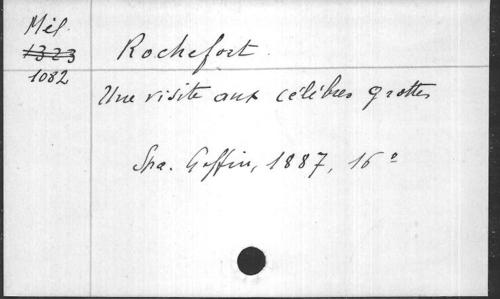 Mél.
1323
1082
Rochefort.
Une visite aux célèbres grottes
Spa. Geffin, 1887, 16°